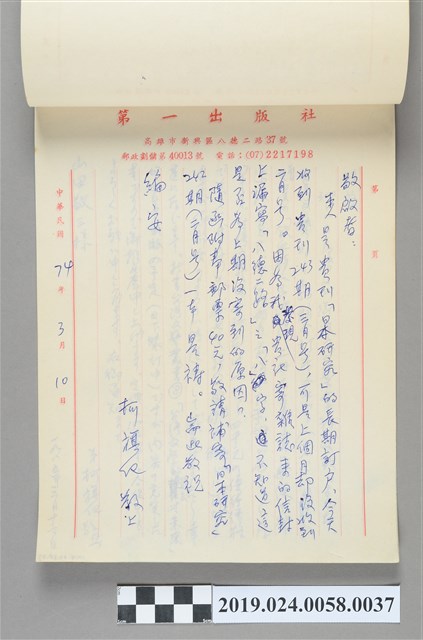 第一出版社
高雄市新興區八德二路37號
郵政劃撥第40013號 電話：(07)2217198
第 頁
敬啟者：
本人是貴刊「日本研究」的長期訂戶，今天
收到貴刊243期(三月號)，可是上個月却沒收到
二月號。因為我發現貴社寄雜誌來的信封
上漏寫「八德二路」之「八」字，不知道這
是否為上期沒寄到的原因？
隨函附奉郵票40元，敬請補寄「日本研究」
242期(二月號)一本是禱。耑此敬祝
編安
柯旗化敬上
中華民國74年3月10日
2019.024.0058.0037